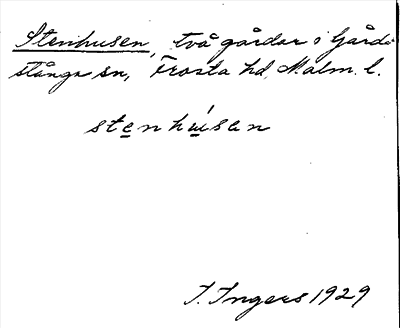 Stenhusen, två gårdar i Gårds-
stånga sn, Frosta hd, Malm. l.
stenhúsen
I. Ingers 1929